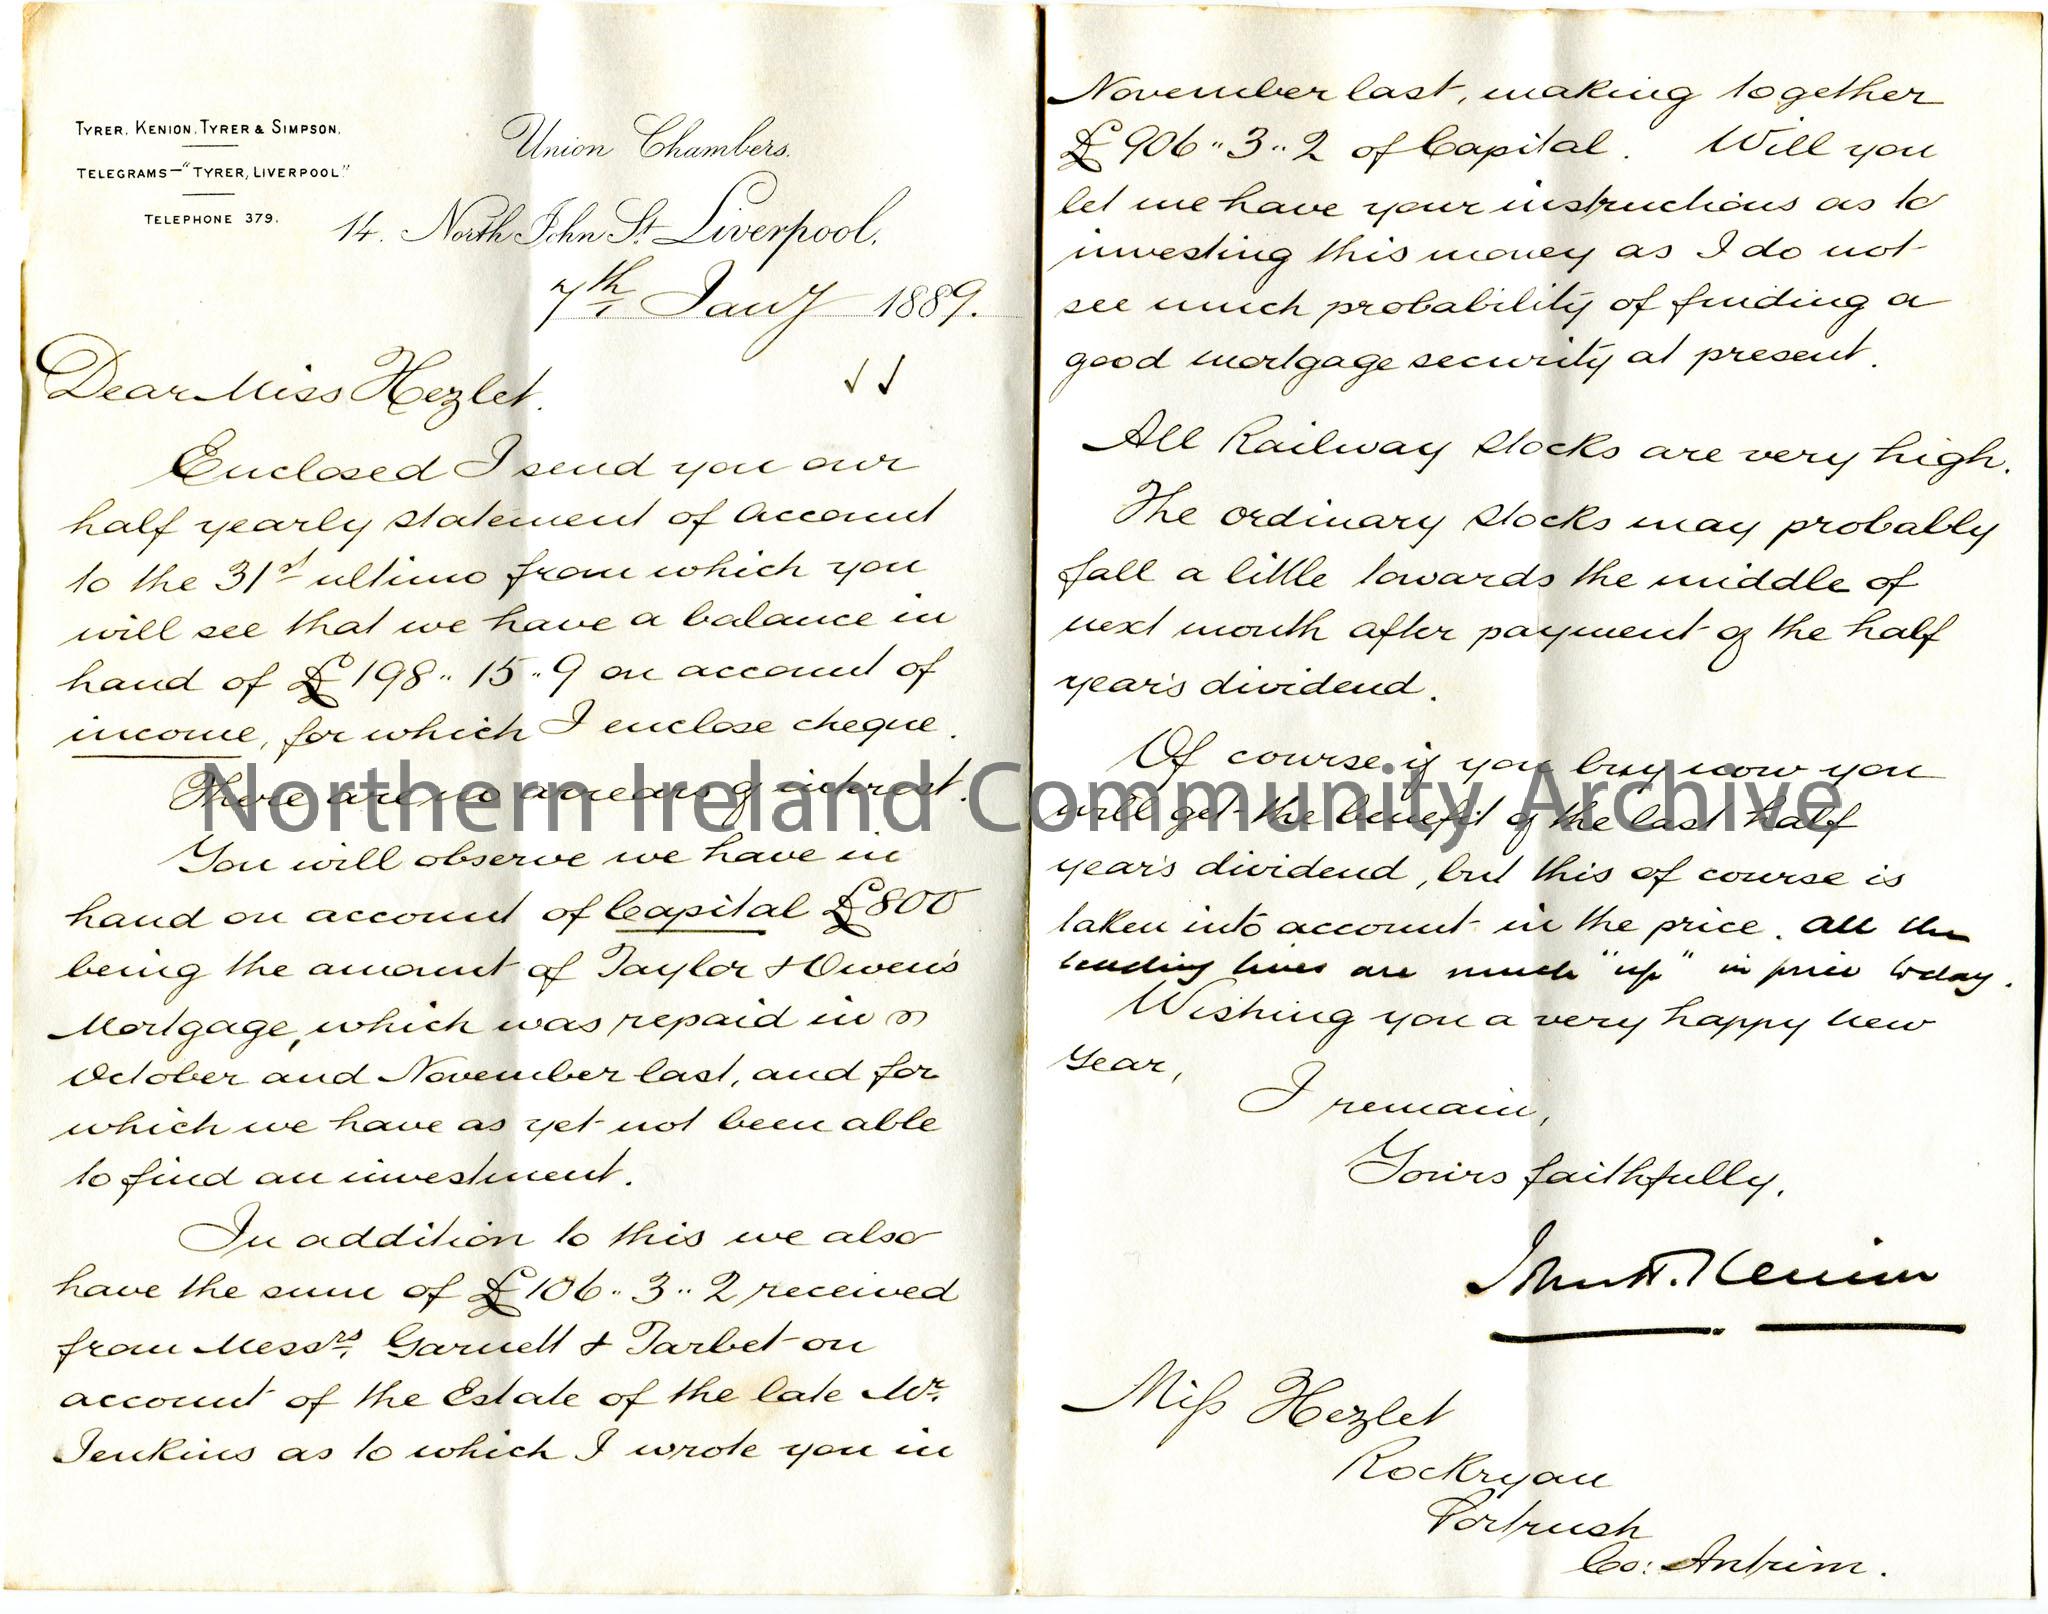 TYRER, KENION, TYRER & SIMPSON.
TELEGRAMS—"TYRER, LIVERPOOL."
TELEPHONE 379.
Union Chambers.
14. North John St. Liverpool.
7th Jany 1889.
Dear Miss Hezlet.
Enclosed I send you our
half yearly statement of account
to the 31st ultimo from which you
will see that we have a balance in
hand of £198..15..9 on account of
income, for which I enclose cheque.
There are no arrears of interest.
You will observe we have in
hand on account of Capital £800
being the amount of Taylor & Owen's
Mortgage, which was repaid in
October and November last, and for
which we have as yet not been able
to find an investment.
In addition to this we also
have the sum of £106..3..2 received
from Messrs. Garnett & Tarbet on
account of the Estate of the late Mr.
Jenkins as to which I wrote you in
November last, making together
£906..3..2 of Capital. Will you
let me have your instructions as to
investing this money as I do not
see much probability of finding a
good mortgage security at present.
All Railway stocks are very high.
The ordinary stocks may probably
fall a little towards the middle of
next month after payment of the half
year's dividend.
Of course if you buy now you
will get the benefit of the last half
year's dividend, but this of course is
taken into account in the price. All the
leading lines are much "up" in price today.
Wishing you a very happy new
year,
I remain,
Yours faithfully,
John H. Kenion
Miss Hezlet
Rockryan
Portrush
Co: Antrim.
Northern Ireland Community Archive